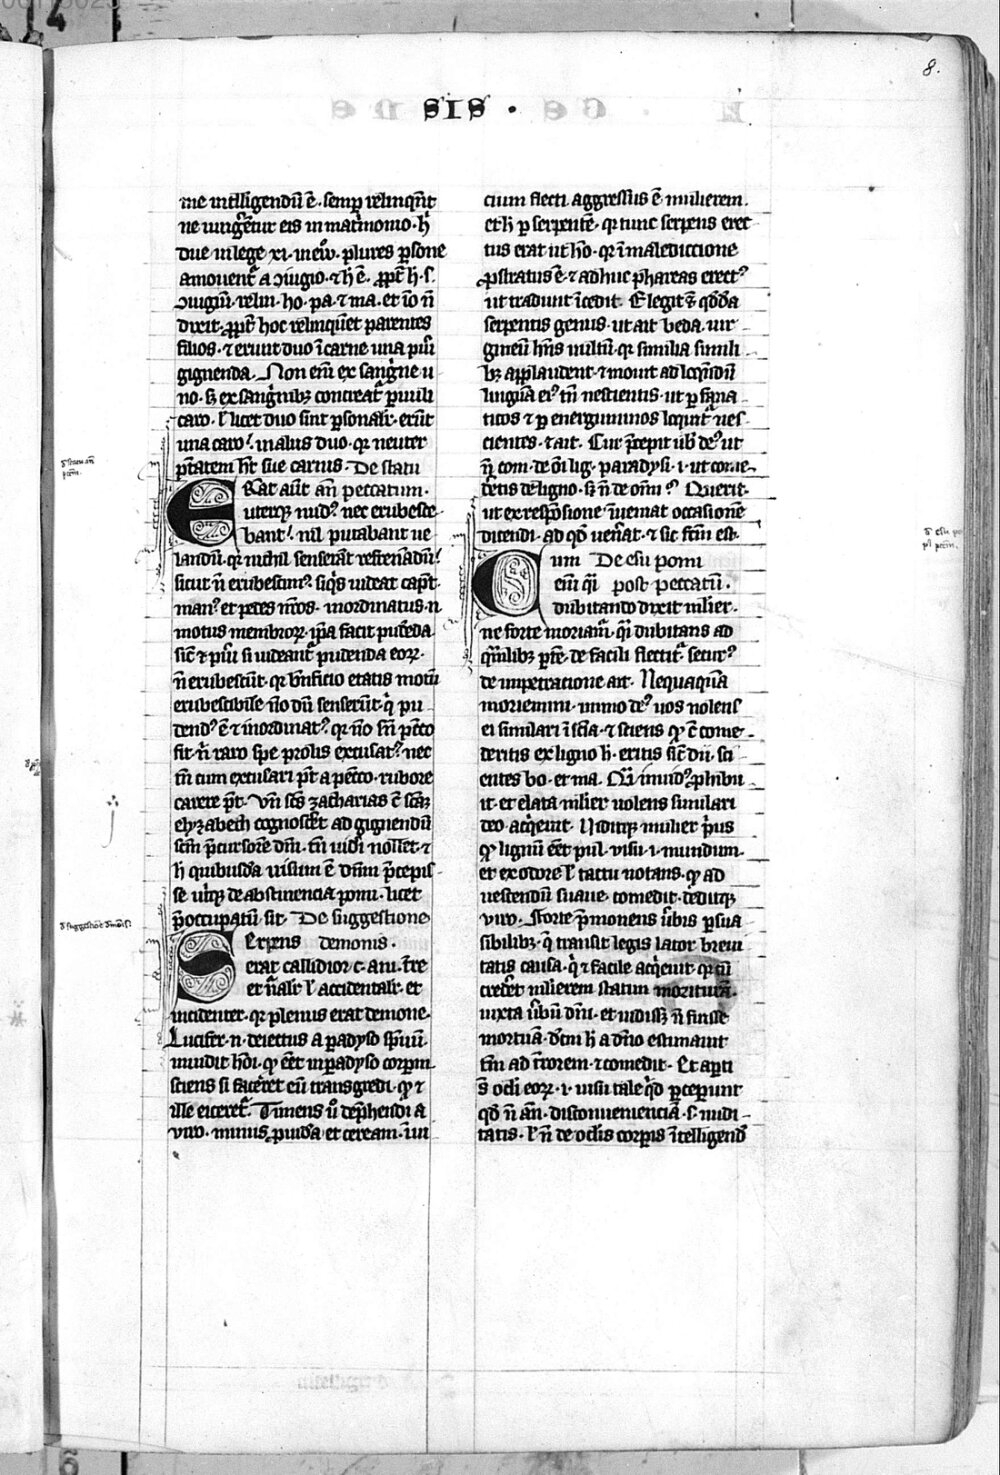 8.
SIS ·
me intelligendū ē. semp relinqūt
ne iungerent̄ eis in matrimonio. h̄
due in lege xi. in eiusd. plures psone
amouent̄ a ꝯiugio. ⁊ h ē. ꝓpt̄ h. s.
ꝯiugiū. relin. ho. pa. ⁊ ma. et iō n̄
dixit. ꝓpt̄ hoc relinquet parentes
filios. ⁊ erunt duo ī carne una pūi
gignenda. Non em̄ ex sangine u
no. sꝫ ex sanginibꝫ concreat̄ puuli
caro. ł licet duo sint psonalr̄. erūt
una caro. in alius duo. qꝛ neuter
p̄tatem hꝫ sue carnis. De statu
Erat aut̄ an̄ peccatum.
uterqꝫ nudꝰ. nec erubesce
bant. nil putabant ue
landū. qꝛ nichil senserāt refrenādū.
sicut n̄ erubescimꝰ. siqͥs uideat capt̄.
manꝰ et pedes nr̄os. inordinatus. n
motus membroꝝ. ipa facit pudēda
sic̄ ⁊ pūi si uideant̄ pudenda eoꝝ.
n̄ erubescūt. qꝛ bn̄ficio etatis motū
erubescibile nōdū senserūt. qͥ pu
dendꝰ ē ⁊ inordinatꝰ. qꝛ nō sn̄ pcc̄o
fit. n̄ raro spe prolis excusatꝰ. nec
tn̄ cum excusari pt̄ a pcc̄o. rubore
carere pt̄. Vn̄ scs̄ zacharias ē scā
elyzabeth cognoscēt ad gignendū
scm̄ p̄cursorē dni. tn̄ uideri nollēt. ⁊
h quibusdā uisum ē dn̄m p̄cepis
se utiqꝫ de abstinencia pomi. licet
p̄occupatū sit. De suggestione
Serpens demonis.
erat callidior c. an. tr̄e
et n̄alr̄ ł accidentalr̄. et
incidenter. qꝛ plenus erat demone.
Lucifer. n. deiectus a padyso sp̄uū.
inuidit hōi. qͦ eēt in padyso corpum
sciens si faceret eū transgredi. qͦ ⁊
ille eiceret̄. Timens u̇ dep̄hendi a
uiro. minus puidā et ceream. ī mi
cium flecti aggressus ē mulierem.
et h p serpentē. qꝛ tunc serpens erec
tus erat ut hō. qꝛ ī malediccione
ꝓstratus ē. ⁊ adhuc phareas erectꝰ
ut tradunt īcedit. Elegit ⁊ qddā
serpentis genus. ut ait beda. uir
gineū hn̄s uultū. qꝛ similia simili
bꝫ applaudent. ⁊ mouit ad loqͥndū
linguā eiꝰ. tn̄ nescientis. ut p fana
ticos ⁊ p energuminos loquit̄ nes
cientes. ⁊ ait. Cur p̄cepit uob̄ deꝰ ut
n̄ com. de ōi lig. paradysi. i. ut come
deretis de ligno. sꝫ n̄ de om̄i? Querit.
ut ex respōsione īueniat occasionē
dicendi. ad qd̄ uenat. ⁊ sic fc̄m est.
Cum De esu pomi
em̄ qi post peccatū.
dubitando dixit mlier.
ne forte moriam̄. qi dubitans ad
qm̄libꝫ pte. de facili flectit̄. securꝰ
de impetracione ait. Nequaqͣ
moriemini. immo deꝰ uos nolens
ei similari ī scīa. ⁊ sciens qͦ cū come
deritis ex ligno h. eritis sic̄ dii. sci
entes bo. et ma. Qi inuidꝰ phibu
it. et elata mlier uolens simulari
deo. acqeuit. Uiditqꝫ mulier pus
qͦ lignū eēt pul. uisu. i. mundum.
et ex odore ł tactu notans. qͦ ad
uescendū suaue. comedit. deditqꝫ
uiro. Forte p̄monens uerbis psua
sibilibꝫ. q̄ transit legis lator breui
tatis causa. qͥ ⁊ facile acqeuit. qꝛ cū
crederet mlierem statim morituram.
iuxta uerbū dni. et uidisset n̄ fuisse
mortuā. dc̄m h a dn̄o estimauit
tm̄ ad tr̄orem. ⁊ comedit. Et apti
s̄ oc̄li eoꝝ. i. uisu tale qͥd pcepunt
qd̄ n̄ an̄. disconueniencia. s. nudi
tatis. ł n̄ de oc̄lis corpis ītelligend̄